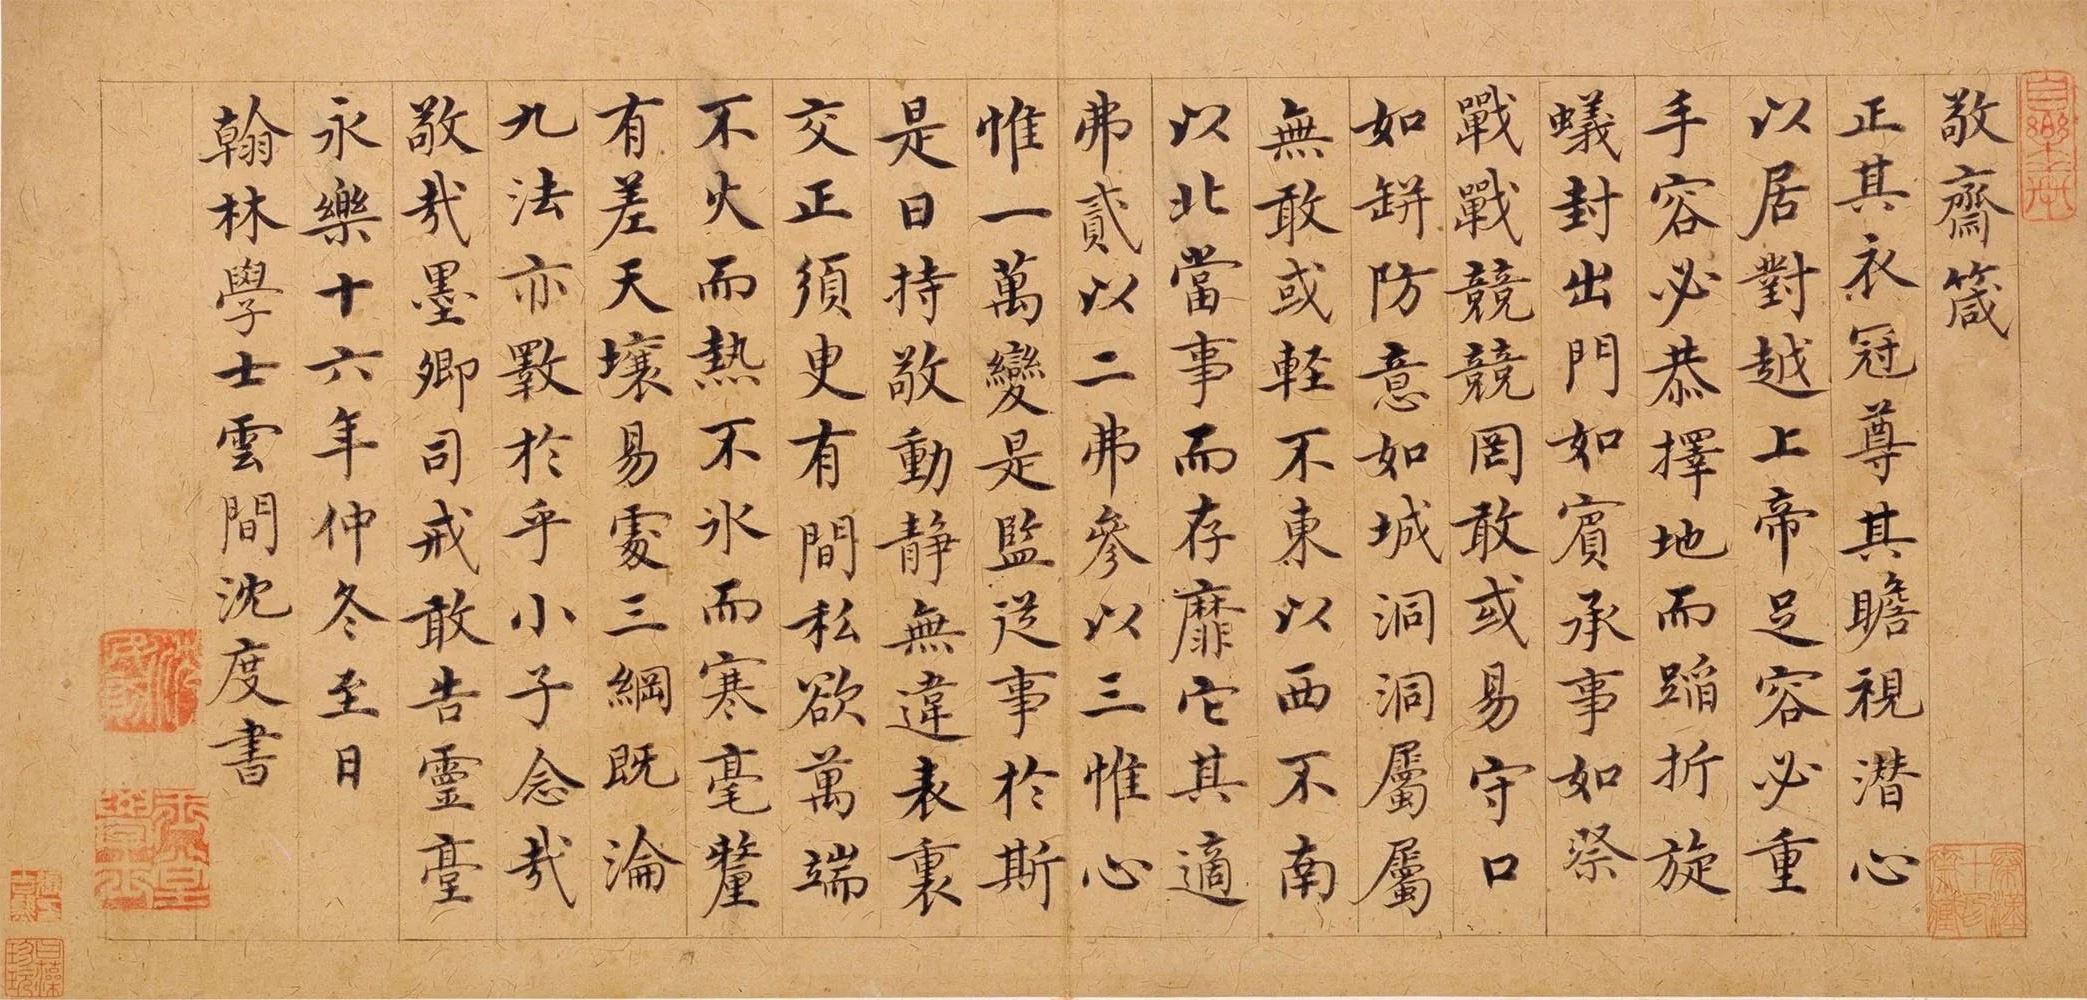 敬齋箴
正其衣冠尊其瞻視潛心
以居對越上帝足容必重
手容必恭擇地而蹈折旋
蟻封出門如賓承事如祭
戰戰競競罔敢或易守口
如缾防意如城洞洞屬屬
無敢或軽不東以西不南
以北當事而存靡它其適
弗貳以二弗參以三惟心
惟一萬變是監從事於斯
是曰持敬動静無違表裏
交正須臾有間私欲萬端
不火而熱不氷而寒毫釐
有差天壤易處三綱既淪
九法亦斁於乎小子念哉
敬哉墨卿司戒敢告靈臺
永樂十六年仲冬至日
翰林學士雲間沈度書